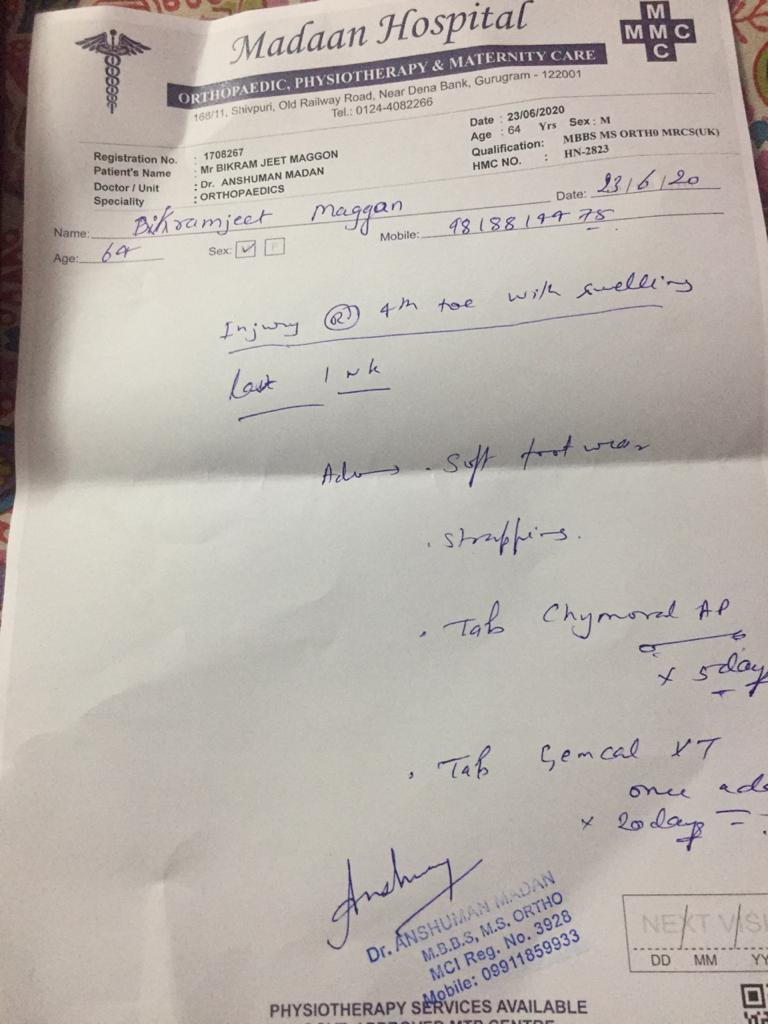 Madaan Hospital
M
M M C
C
ORTHOPAEDIC, PHYSIOTHERAPY & MATERNITY CARE
168/11, Shivpuri, Old Railway Road, Near Dena Bank, Gurugram - 122001
Tel.: 0124-4082266
Registration No. : 1708267
Patient's Name : Mr BIKRAM JEET MAGGON
Doctor / Unit : Dr. ANSHUMAN MADAN
Speciality : ORTHOPAEDICS
Date : 23/06/2020
Age : 64 Yrs Sex : M
Qualification: MBBS MS ORTH0 MRCS(UK)
HMC NO. : HN-2823
Name: Bikramjeet Maggan Date: 23/6/20
Age: 64 Sex: ✓ F Mobile:
Injury (Rt) 4th toe with swelling
last 1 wk
. Soft footwear
. strapping.
. Tab Chymoral AP
x 5 day
. Tab Gemcal XT
once
x 20 days
Dr. ANSHUMAN MADAN
M.B.B.S, M.S. ORTHO
MCI Reg. No. 3928
Mobile: 09911859933
NEXT VISI
DD MM YY
PHYSIOTHERAPY SERVICES AVAILABLE